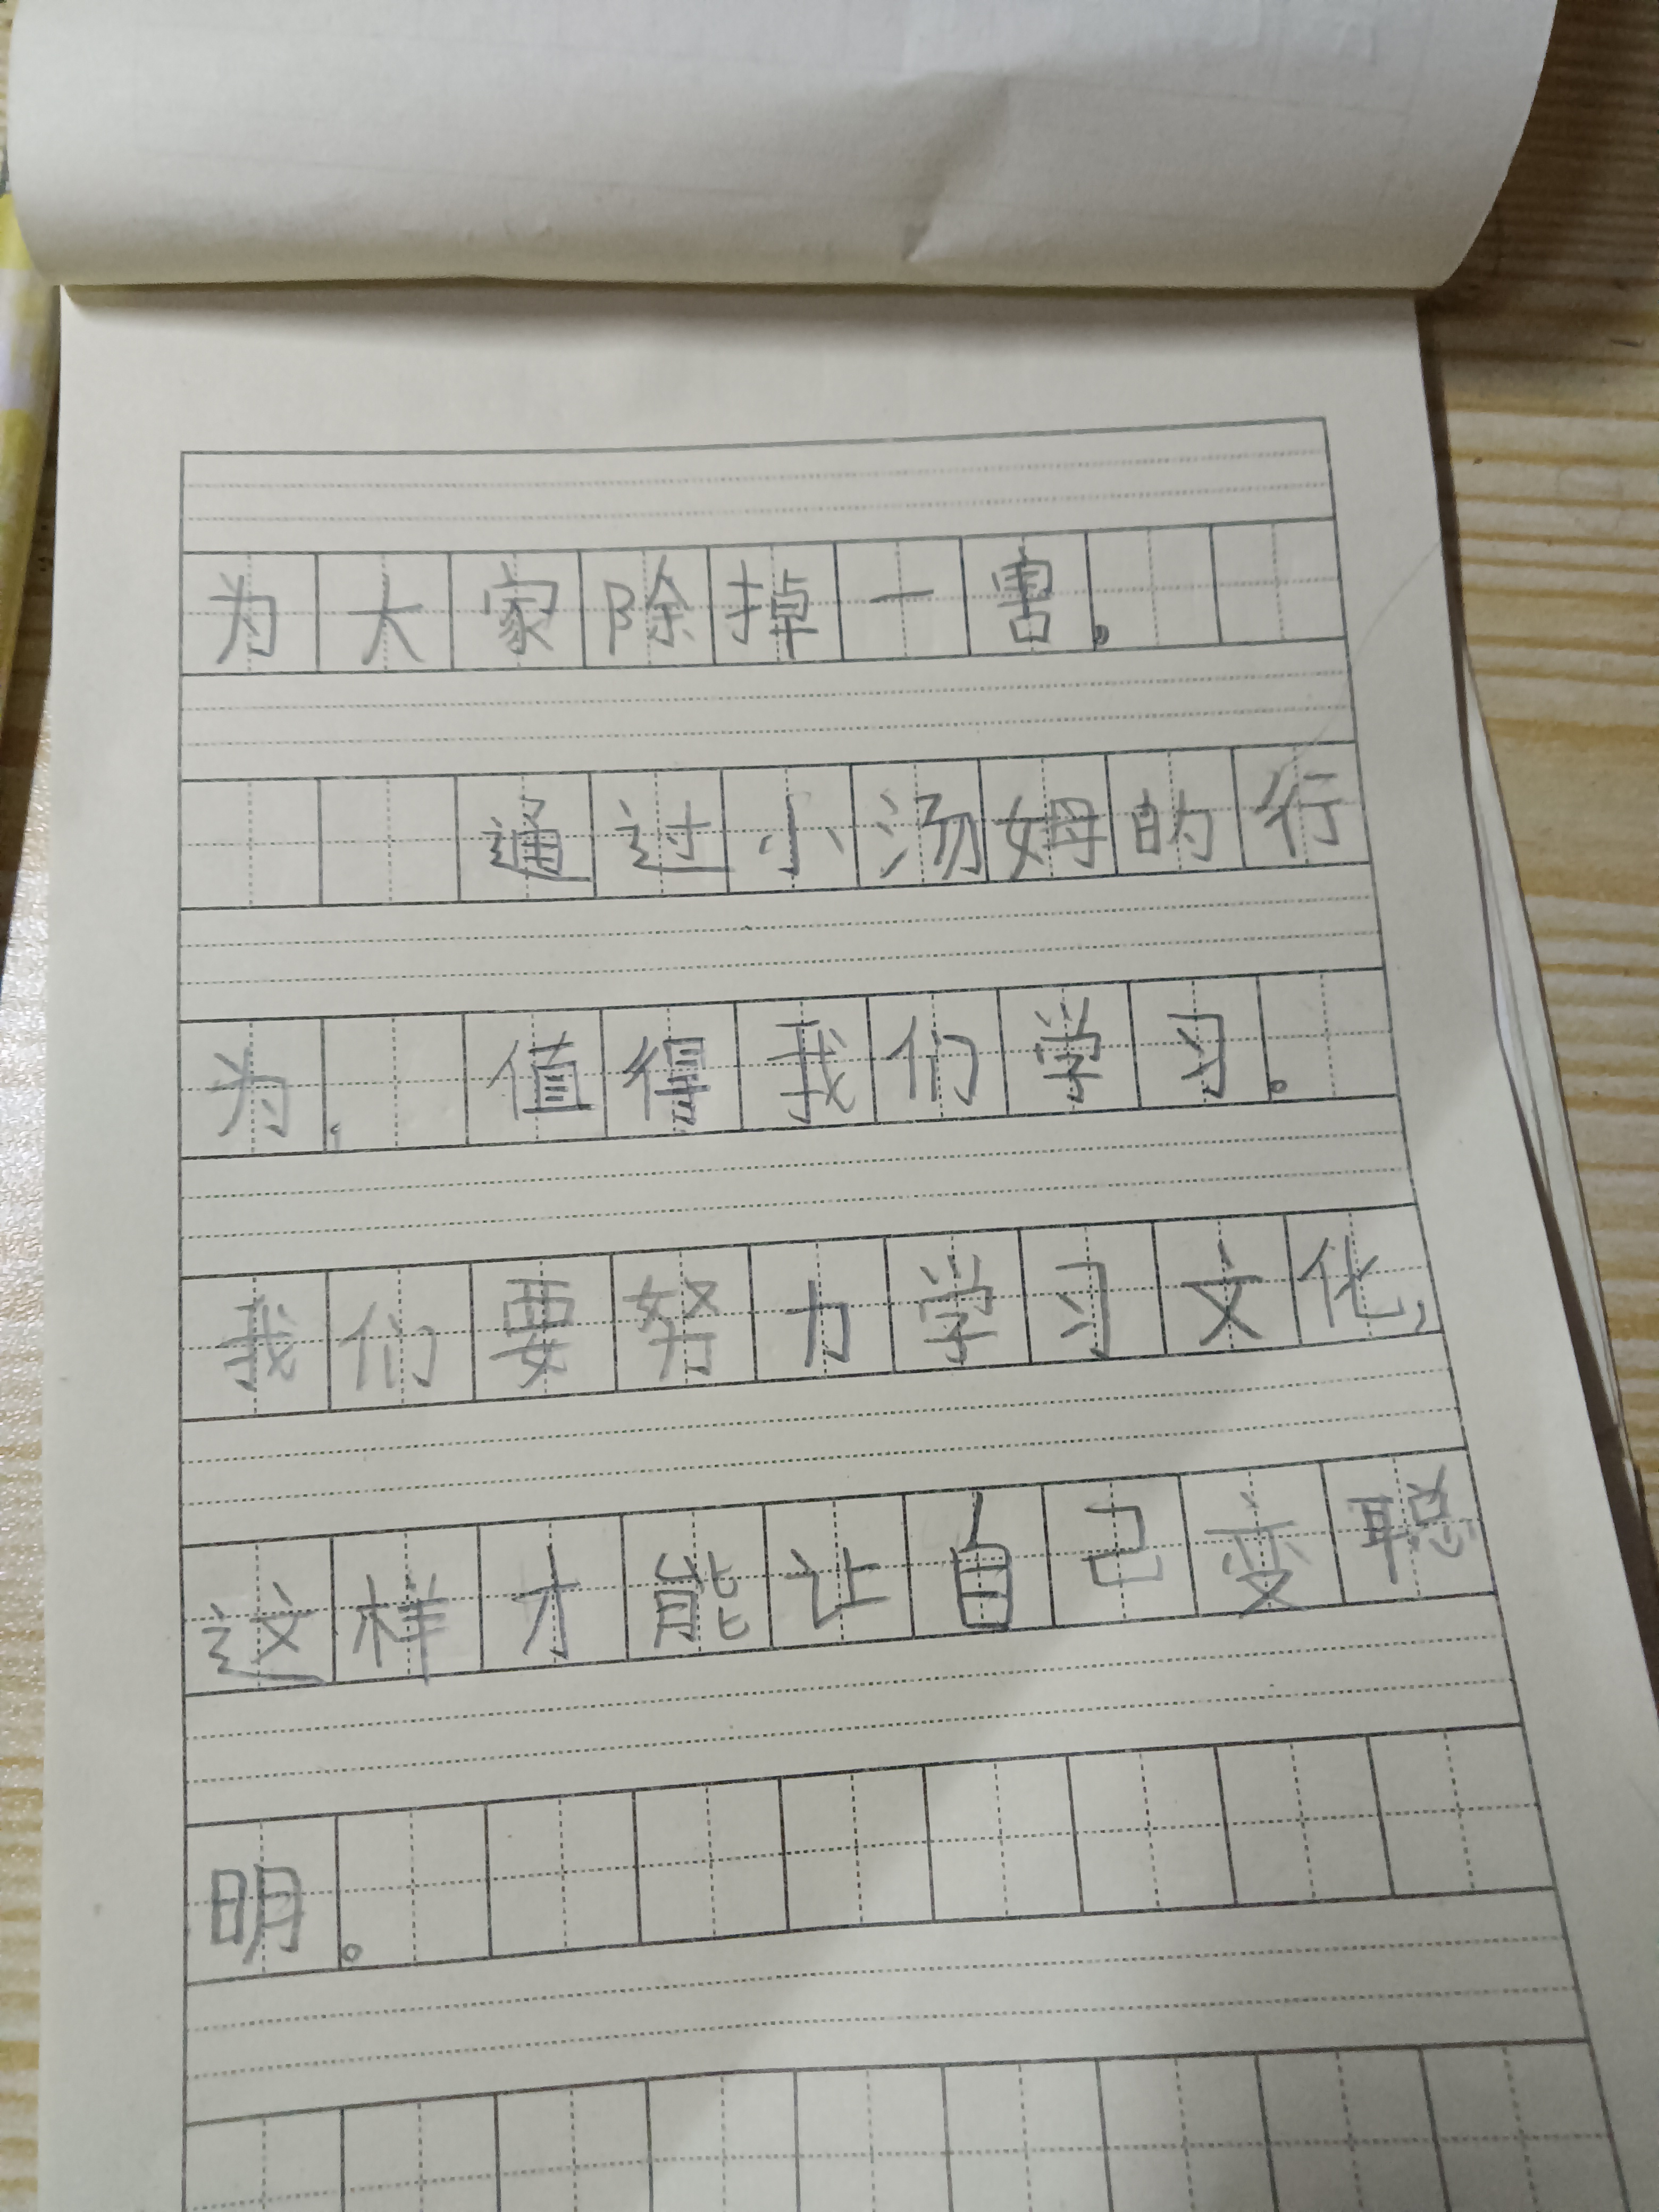 为大家除掉一害。
通过小汤姆的行
为，值得我们学习。
我们要努力学习文化，
这样才能让自己变聪
明。